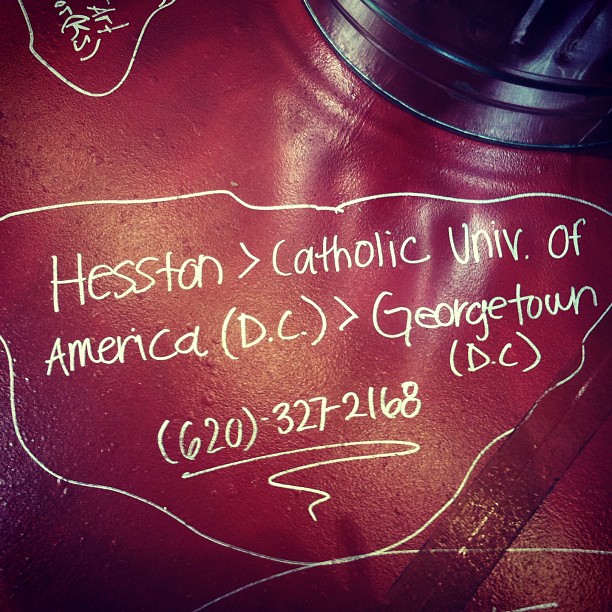 Art
Hesston > Catholic Univ. of
America (D.C.) > Georgetown
(D.C)
(620)-327-2168